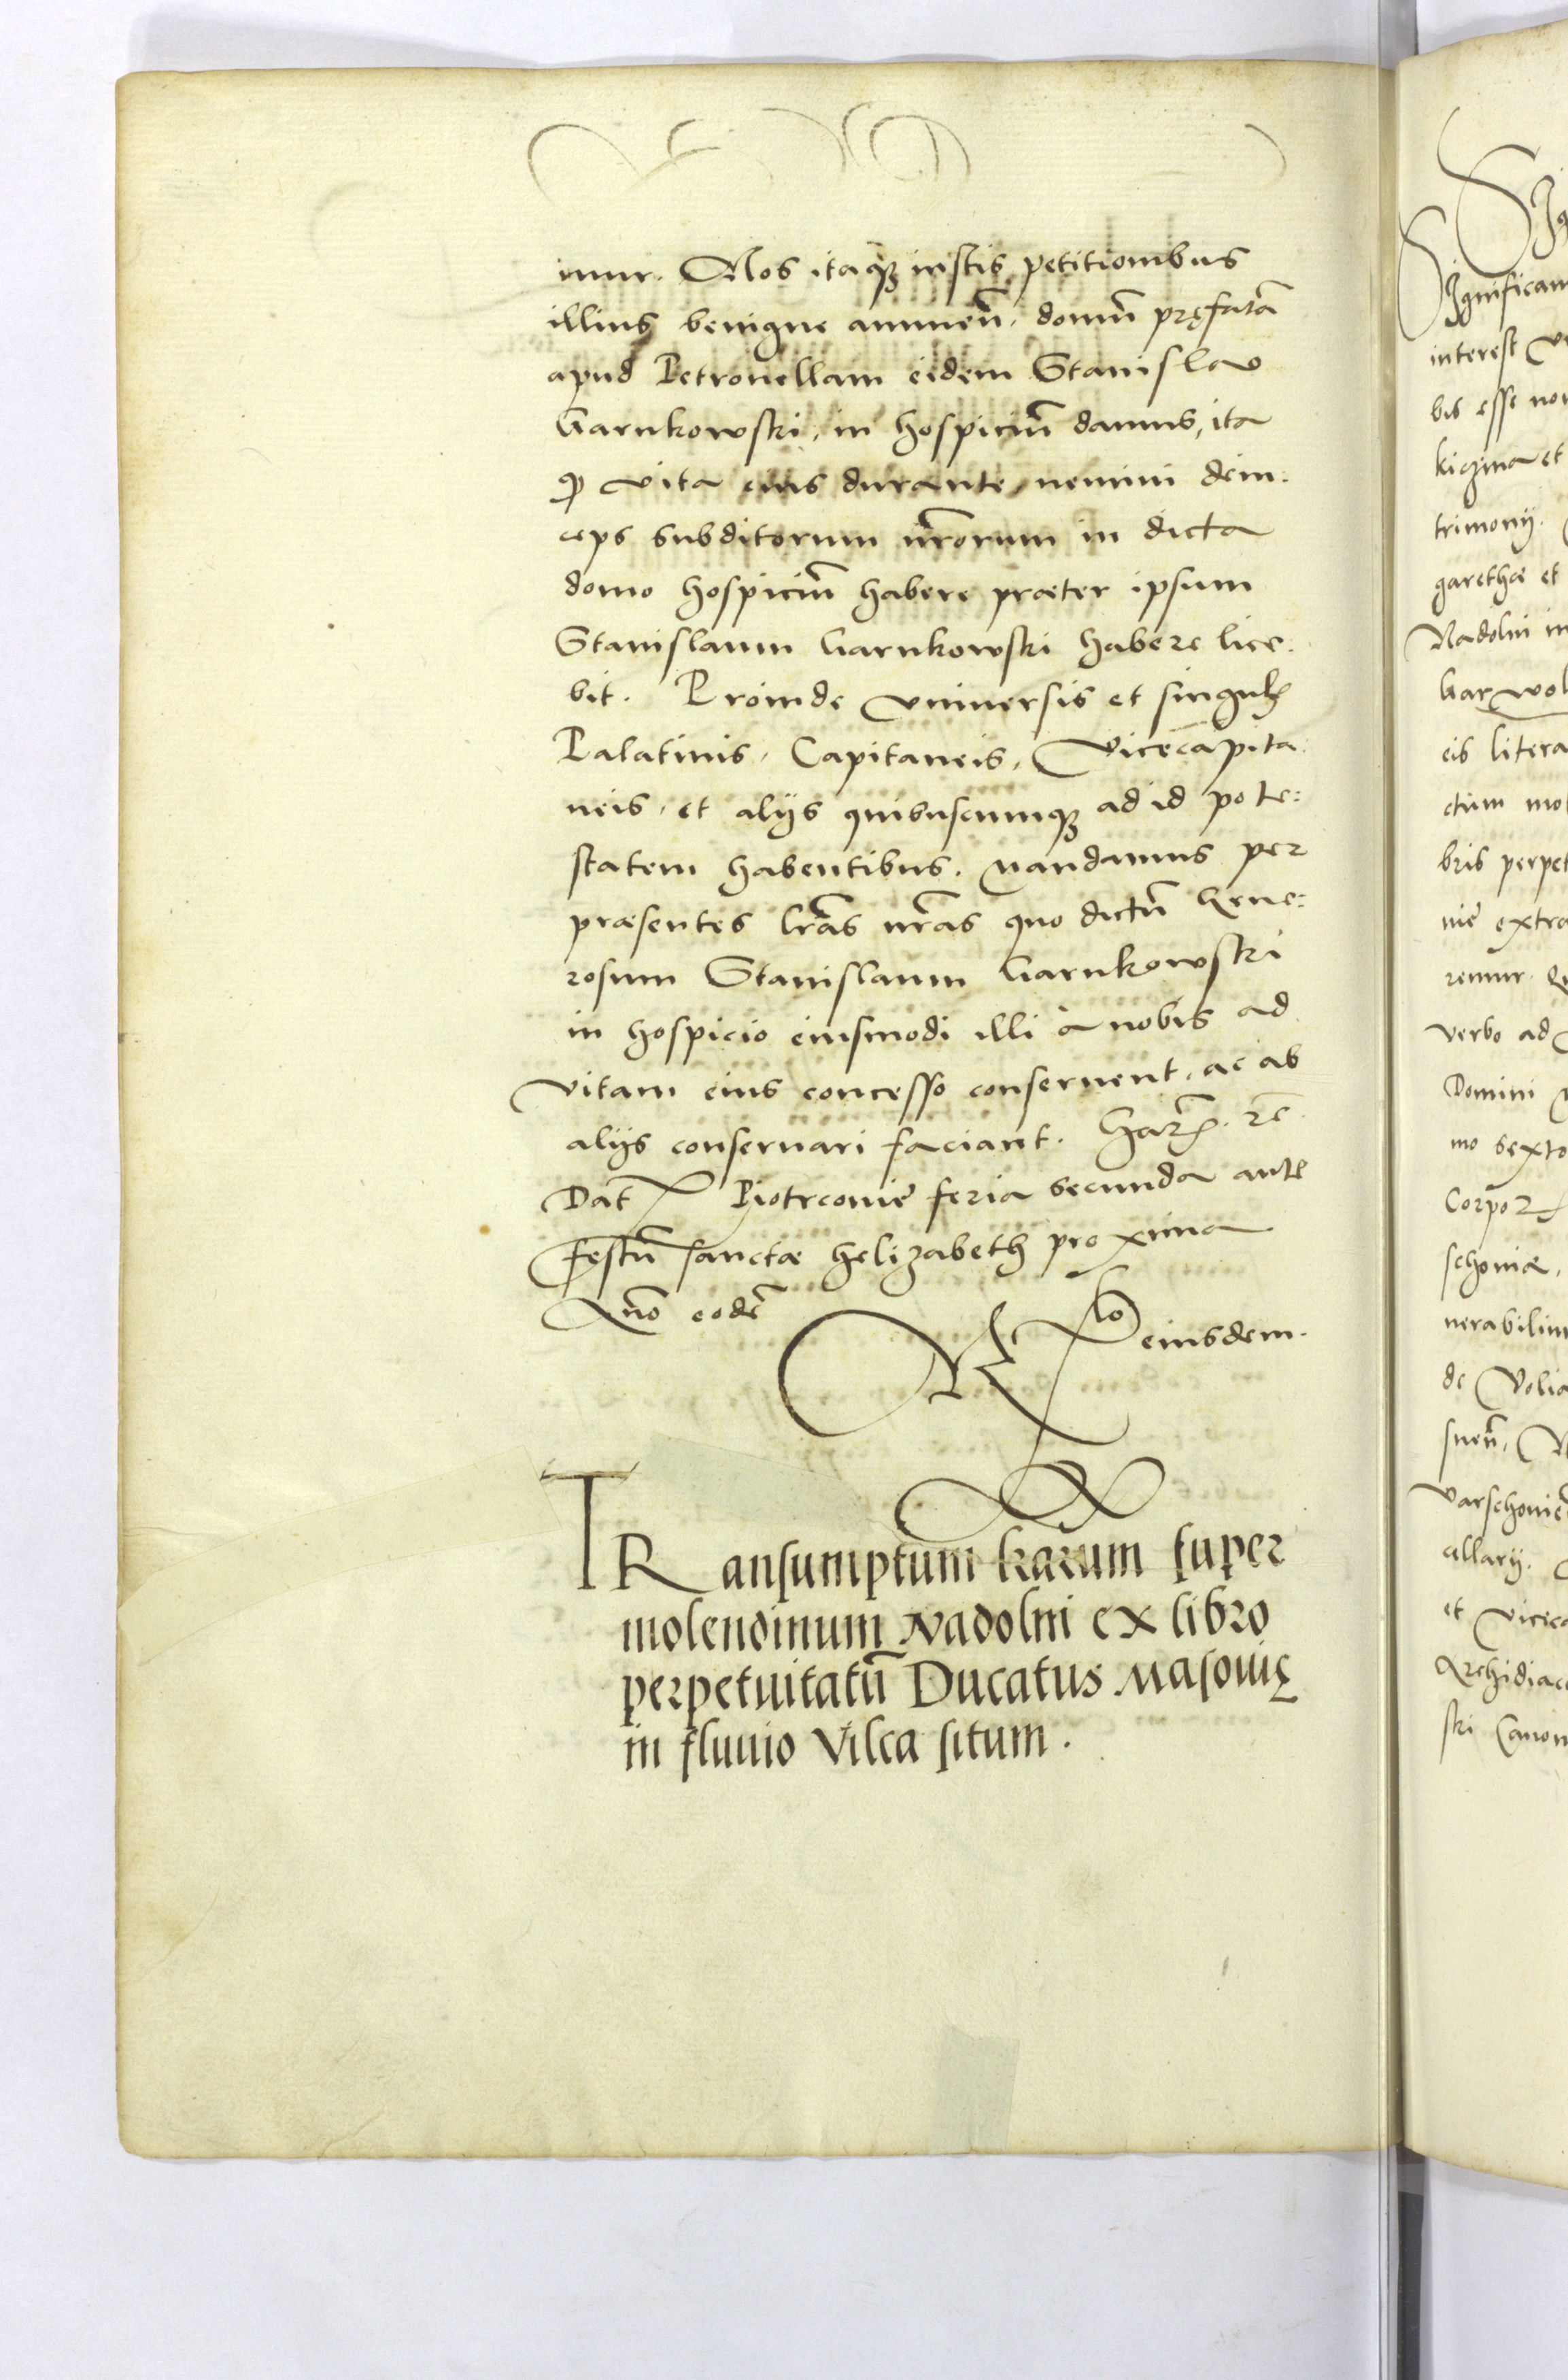 imur. Nos itaqꝫ iustis petitionibus
illius benigne annuen̄. domū pręfatā
apud Petronellam eidem Stanislao
Garnkowski, in hospiciū damus, ita
ꝙ vita eius durante, nemini dein:
ceps subditorum nr̄orum in dicta
domo hospiciū habere præter ipsum
Stanislaum Garnkowski habere lice:
bit. Proinde vniuersis et singulꝭ
Palatinis, Capitaneis, Vicecapita:
neis, et alijs quibuscumqꝫ ad id pote:
statem habentibus. Mandamus per
præsentes lr̄as nr̄as quo dictū Gene:
rosum Stanislaum Garnkowski
in hospicio eiusmodi illi à nobis ad
vitam eius concesso conseruent, ac ab
alijs conseruari faciant. Harꝝ. rē
Dat̄ Piotrcouiē feria secunda ante
festū sanctæ Helizabeth proxima
Anō eodē
R̃lo eiusdem.
TRansumptum lr̄arum super
molendinum Nadolni ex libro
perpetuitatū Ducatus Masouię
in fluuio Vilca situm.
Significam
interest
bis esse non
kiczina et
trimonij.
garethæ et
Nadolni in
Garwol
eis litera
ctum mo
bris perpet
niē extra
remur.
verbo ad
Domini
mo sexto
Corporꝭ
schoniæ,
nerabilium
de Volia
snen̄,
Varschoniē
cellarij.
et viceca
Archidiaco
ski Canon